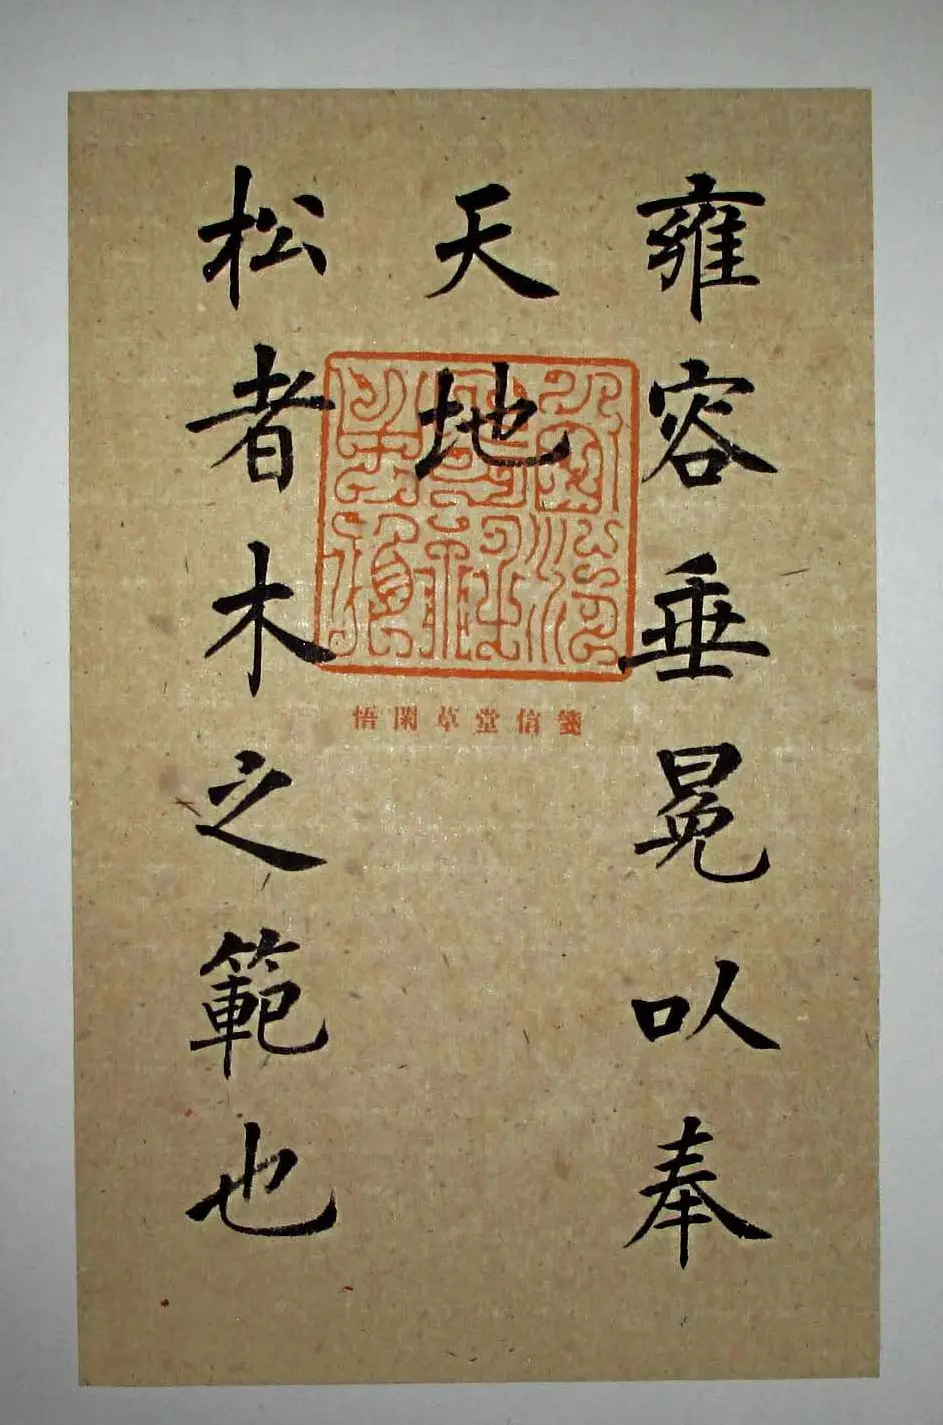 雍容垂冕以奉
天地
松者木之範也
箋信堂草閑悟